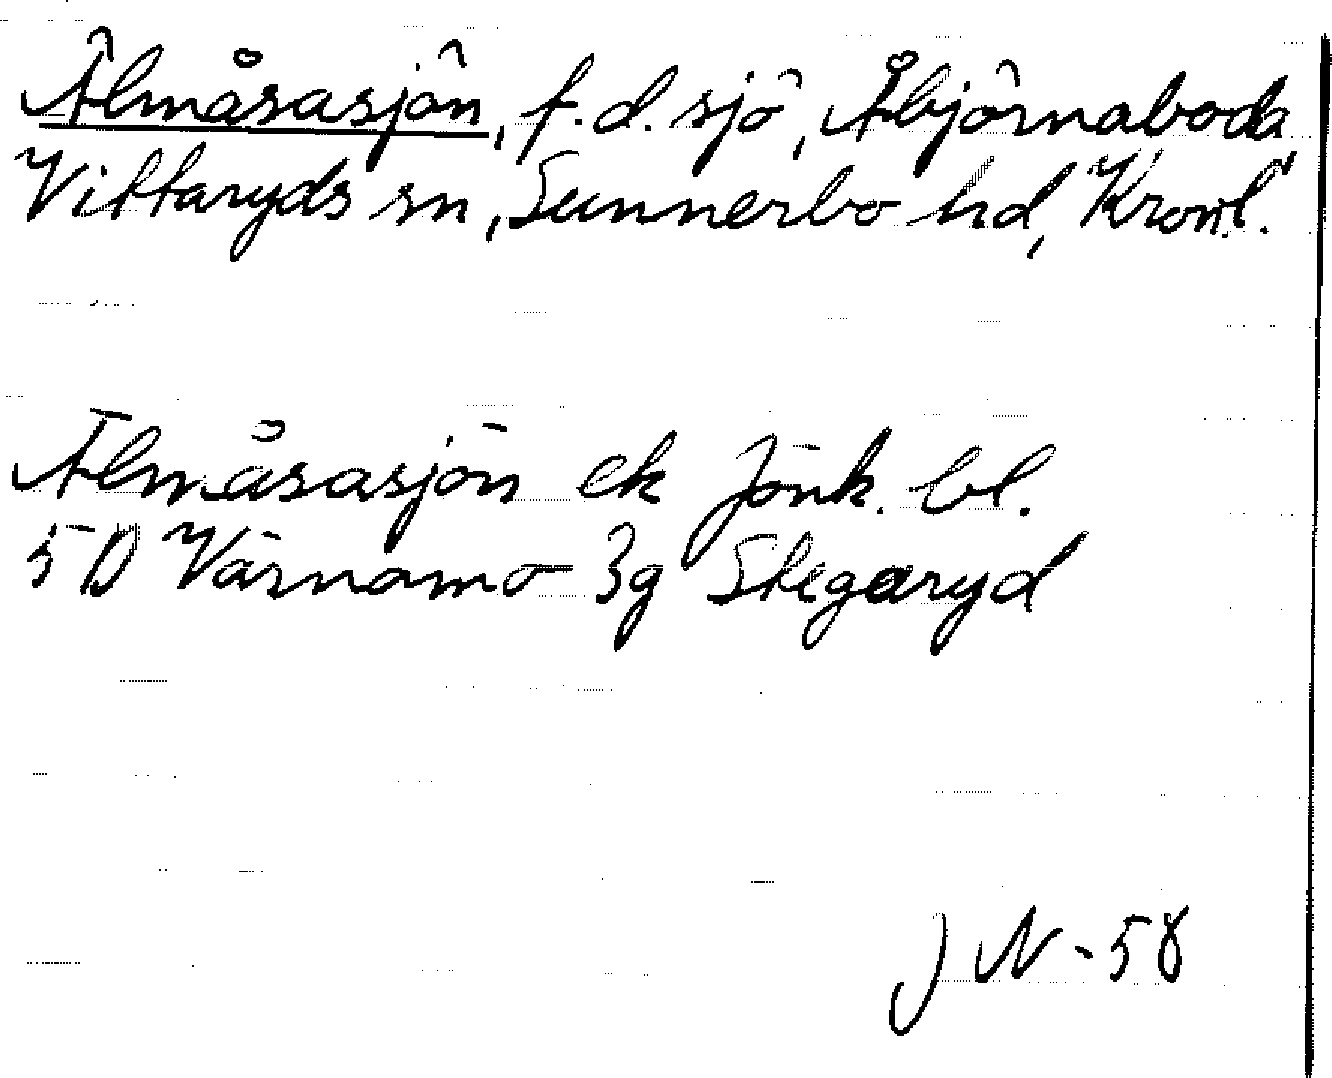 Älmåsasjön, f.d. sjö, Åbjörnaboda
Vittaryds sn, Sunnerbo hd, Kronl.
Älmåsasjön ek Jönk. bl.
5D Värnamo 3g Skegaryd
J N - 58